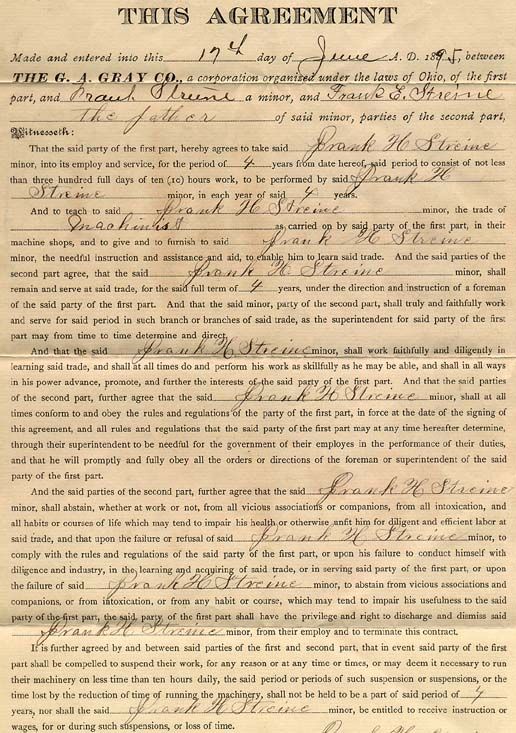 THIS AGREEMENT
Made and entered into this 17th day of June A. D. 1895, between
THE G. A. GRAY CO., a corporation organized under the laws of Ohio, of the first
part, and Frank Streine a minor, and Frank E. Streine
the father of said minor, parties of the second part,
Witnesseth:
That the said party of the first part, hereby agrees to take said Frank H Streine
minor, into its employ and service, for the period of 4 years from date hereof, said period to consist of not less
than three hundred full days of ten (10) hours work, to be performed by said Frank H
Streine minor, in each year of said 4 years.
And to teach to said Frank H Streine minor, the trade of
Machinist as carried on by said party of the first part, in their
machine shops, and to give and to furnish to said Frank H Streine
minor, the needful instruction and assistance and aid, to enable him to learn said trade. And the said parties of the
second part agree, that the said Frank H Streine minor, shall
remain and serve at said trade, for the said full term of 4 years, under the direction and instruction of a foreman
of the said party of the first part. And that the said minor, party of the second part, shall truly and faithfully work
and serve for said period in such branch or branches of said trade, as the superintendent for said party of the first
part may from time to time determine and direct.
And that the said Frank H Streine minor, shall work faithfully and diligently in
learning said trade, and shall at all times do and perform his work as skillfully as he may be able, and shall in all ways
in his power advance, promote, and further the interests of the said party of the first part. And that the said parties
of the second part, further agree that the said Frank H Streine minor, shall at all
times conform to and obey the rules and regulations of the party of the first part, in force at the date of the signing of
this agreement, and all rules and regulations that the said party of the first part may at any time hereafter determine,
through their superintendent to be needful for the government of their employes in the performance of their duties,
and that he will promptly and fully obey all the orders or directions of the foreman or superintendent of the said
party of the first part.
And the said parties of the second part, further agree that the said Frank H Streine
minor, shall abstain, whether at work or not, from all vicious associations or companies, from all intoxication, and
all habits or courses of life which may tend to impair his health or otherwise unfit him for diligent and efficient labor at
said trade, and that upon the failure or refusal of said Frank H Streine minor, to
comply with the rules and regulations of the said party of the first part, or upon his failure to conduct himself with
diligence and industry, in the learning and acquiring of said trade, or in serving said party of the first part, or upon
the failure of said Frank H Streine minor, to abstain from vicious associations and
companies, or from intoxication, or from any habit or course, which may tend to impair his usefulness to the said
party of the first part, the said party of the first part shall have the privilege and right to discharge and dismiss said
Frank H Streine minor, from their employ and to terminate this contract.
It is further agreed by and between said parties of the first and second part, that in event said party of the first
part shall be compelled to suspend their work, for any reason or at any time or times, or may deem it necessary to run
their machinery on less time than ten hours daily, the said period or periods of such suspension or suspensions, or the
time lost by the reduction of time of running the machinery, shall not be held to be a part of said period of 4
years, nor shall the said Frank H Streine minor, be entitled to receive instruction or
wages, for or during such suspensions, or loss of time.